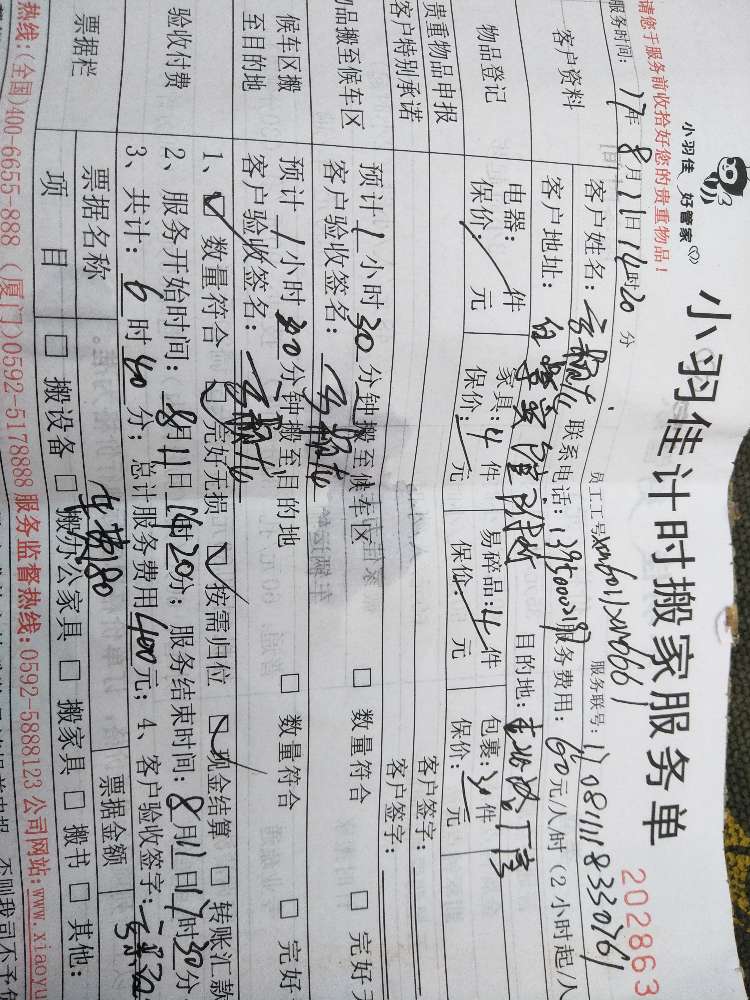 小羽佳 好管家
小羽佳计时搬家服务单
202863
请您于服务前收拾好您的贵重物品！
服务时间： 17年8月11日14时20分 员工工号 服务联号：
客户资料
客户姓名： 联系电话： 服务费用：60元/人时（2小时起/人
客户地址： 目的地：
物品登记
电器： 件 家具：4件 易碎品：4件 包裹：30件
保价： 元 保价： 元 保价： 元 保价： 元
贵重物品申报 客户签字：
客户特别承诺 客户签字：
物品搬至候车区
预计1小时30分钟搬至候车区 □ 数量符合 □ 完好无
客户验收签名：
候车区搬至目的地
预计1小时30分钟搬至目的地 □ 数量符合 □ 完好
客户验收签名：
验收付费
1、☑ 数量符合 ☑ 完好无损 ☑ 按需归位 ☑ 现金结算 □ 转账汇款
2、服务开始时间：8月11日14时20分；服务结束时间：8月11日17时30分
3、共计：6时40分；总计服务费用400元；4、客户验收签字：
票据栏
票据名称 车费80 票据金额
项 目 □ 搬设备 □ 搬办公家具 □ 搬家具 □ 搬书 □ 其他：
热线：(全国)400-6655-888 (厦门)0592-5178888 服务监督热线：0592-5888123 公司网站：www.xiaoyu